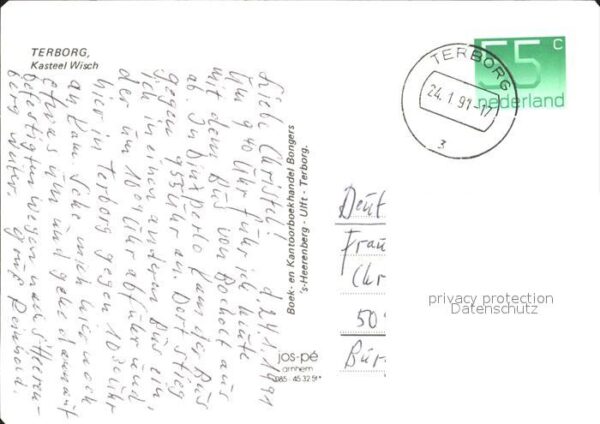 TERBORG,
Kasteel Wisch
d. 24.1.1991
Liebe Christel!
Um 9 40 Uhr fuhr ich heute
mit dem Bus von Bocholt aus
ab. In Dinxperlo kam der Bus
gegen 9 55 Uhr an. Dort stieg
ich in einen anderen Bus ein,
der um 10 04 Uhr abfuhr und
hier in Terborg gegen 10 30 Uhr
an kam. Sehe mich hier noch
etwas um und gehe dann auf
befestigten Wegen nach s'Heeren-
berg weiter. Gruß Reinhold.
Boek- en Kantoorboekhandel Bongers
's-Heerenberg - Ulft - Terborg.
jos-pé
arnhem
085-453251*
55 c
nederland
TERBORG
24.1.91-17
3
Deut
Frau
Chr
50
Bür
privacy protection
Datenschutz